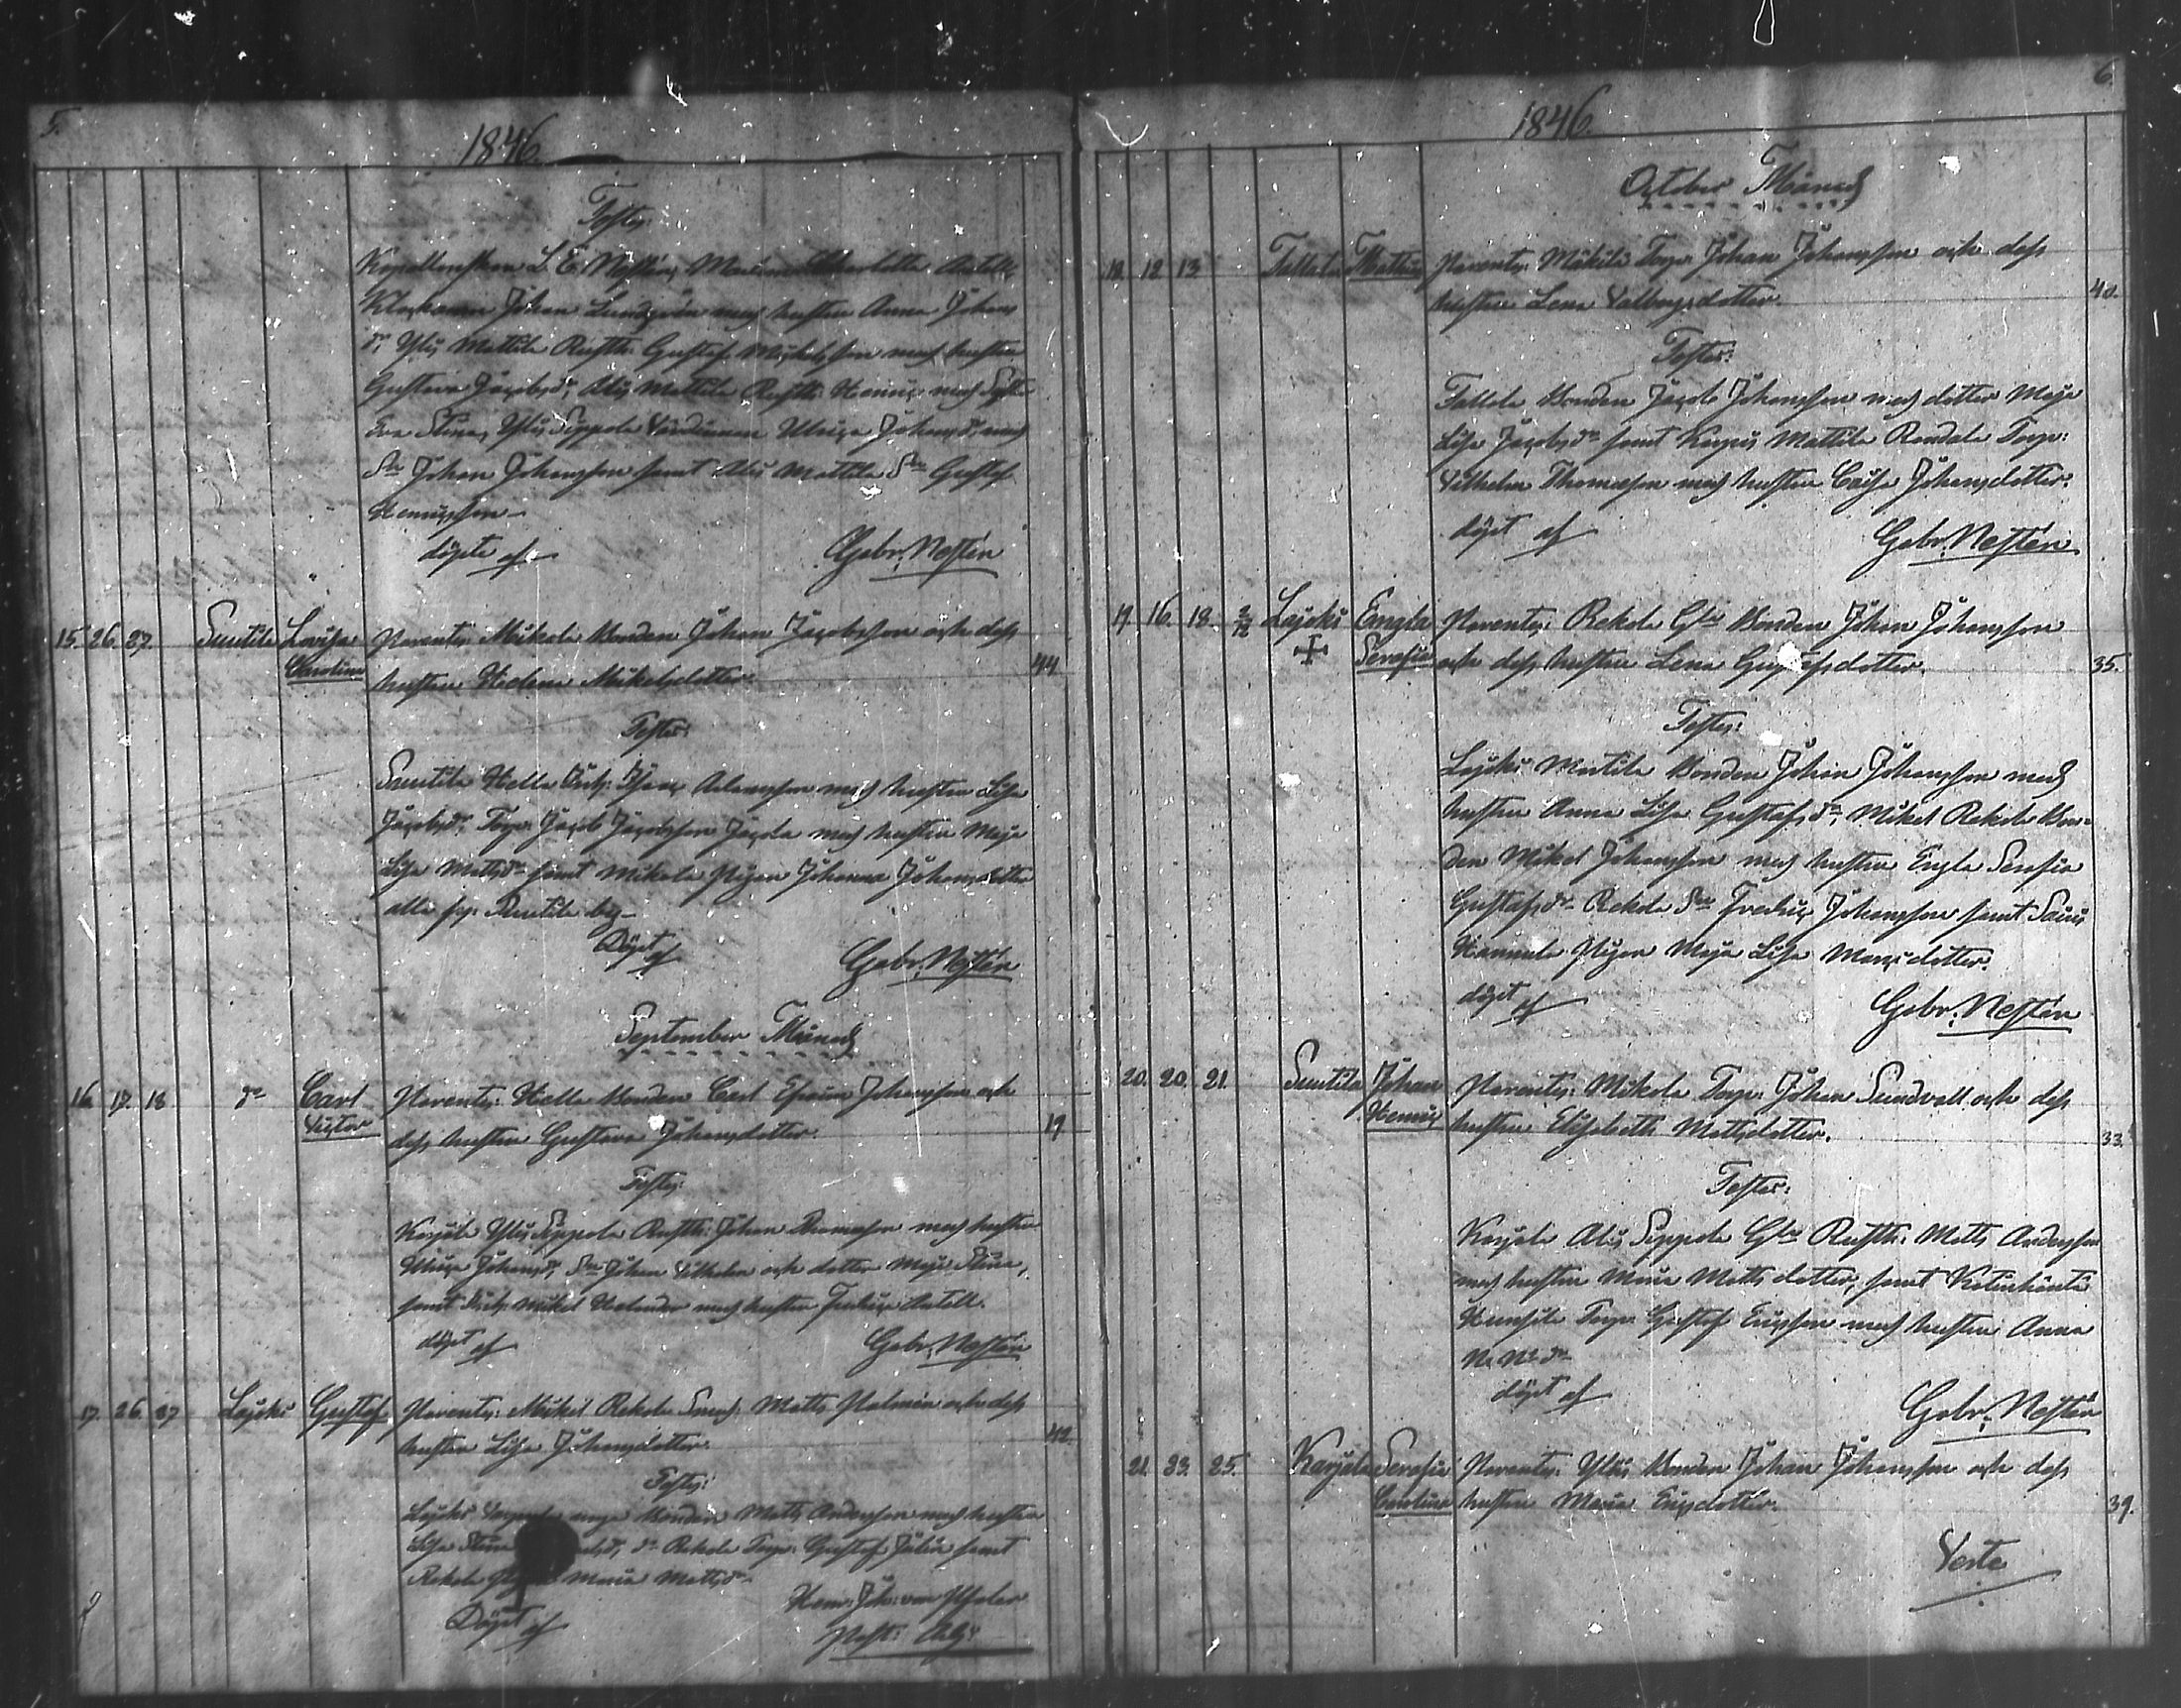 5.
1846.
Testes:
Kapellanskan L. E. Nestén, Charlotta Antell,
Klockaren Johan Lundgrén med hustru Anna Johans
dr, Ylis Mattila Rusth: Gustaf Mickelsson med hustru
Gustava Jacobsdr, Alis Mattila Rusth: Henric med
Eva Stina, Ylis Seppola Värdinnan Ulrica Johansdr, med
Sn Johan Johansson samt Alis Mattila Sn Gustaf
Henricsson
döpte af Gabr. Nestén
15. 26. 27. Suutila Lovisa Parentes: Mikola Bonden Johan Jacobsson och dess
Carolina hustru Helena Mickelsdotter. 44
Testes:
Suutila Helle Isaac Adamsson med hustru Lisa
Jacobsdr, Torp: Jacob Jacobsson Jacola med hustru Maja
Lisa Mattsdr samt Mikola Pigan Johanna Johansdotter
alla fr. Suutila by
Döpt af Gabr. Nestén
September Månad
16. 17. 18 do Carl Parentes: Helle Bonden Carl Efraim Johansson och
Victor dess hustru Gustava Johansdotter. 19
Testes:
Karjala Ylis Seppola Rusth: Johan Thomasson med hustru
Ulrica Johansdr, Sn Johan Vilhelm och dotter Maja Stina,
samt Mikel Helander med hustru Fredrica Antell.
döpt af Gabr. Nestén
17. 26. 27 Lajoki Gustaf Parentes: Mickel Rekola Matts Palmén och dess
hustru Lisa Johansdotter. 42
Testes:
Lajoki Bonden Matts Andersson med hustru
Lisa Stina Rekola Torp: Gustaf Julin samt
Rekola Maria Mattsdr
Döpt af Henr: Joh: von Pfaler
Past: Adj:
6.
1846.
October Månad
18. 12 13 Tallola Mathias Parentes: Mäkilä Torp: Johan Johansson och dess
hustru Lena Valborgsdotter 40.
Testes:
Tallola Bonden Jacob Johansson med dotter Maja
Lisa Jacobsdr samt Mattila Torp:
Vilhelm Thomasson med hustru Caisa Johansdotter.
döpt af Gabr. Nestén
19. 16. 18. 2/12 Lajoki Engla Parentes: Rekola Gla Bonden Johan Johansson
Serafia och dess hustru Lena Gustafsdotter. 35.
Testes:
Lajoki Mattila Bonden Johan Johansson med
hustru Anna Lisa Gustafsdr, Mikel Rekola Bon-
den Mikel Johansson med hustru Engla Serafia
Gustafsdr Rekola Sn Fredric Johansson samt
Hannula Pigan Maja Lisa dotter.
döpt af Gabr. Nestén
20. 20. 21. Suutila Johan Parentes: Mikola Torp: Johan Sundvall och dess
Henric hustru Elisabeth Mattsdotter. 33.
Testes:
Karjala Alis Seppola Gla Rusth: Matts Andersson
med hustru Maria Mattsdotter, samt
Torp: Gustaf Ericsson med hustru Anna
N. N. dr
döpt af Gabr. Nestén
21. 23. 25. Karjala Serafia Parentes: Ylis Bonden Johan Johansson och dess
Carolina hustru Maria Ericsdotter. 39.
Verte